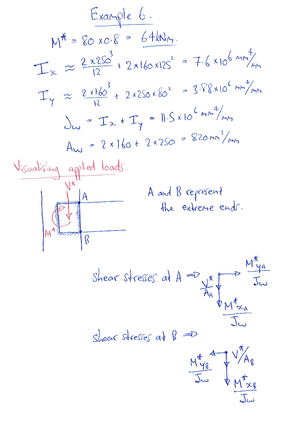 Example 6.
M* = 80 x 0.8 = 64kNm.
Ix ≈ 2x250³/12 + 2x160x125² = 7.6x10⁶ mm⁴/mm
Iy ≈ 2x160³/12 + 2x250x80² = 3.88x10⁶ mm⁴/mm
Jw = Ix + Iy = 11.5x10⁶ mm⁴/mm
Aw = 2x160 + 2x250 = 820mm²/mm
Visualising applied loads.
V*
A
M*
B
A and B represent
the extreme ends.
Shear stresses at A ⇒
M*yA/Jw
V*/AA
M*xA/Jw
Shear stresses at B ⇒
M*yB/Jw
V*/AB
M*xB/Jw